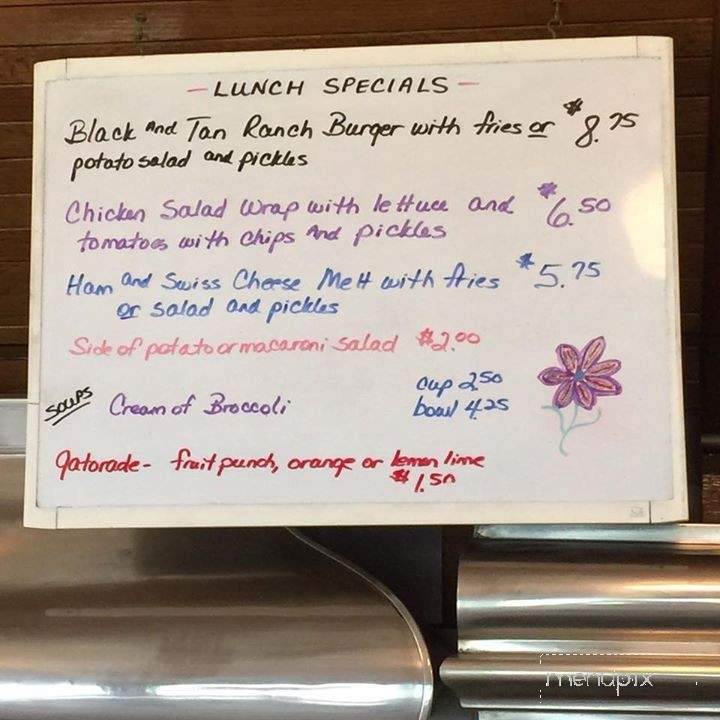 - LUNCH SPECIALS -
Black And Tan Ranch Burger with fries or $8.75
potato salad and pickles
Chicken Salad Wrap with lettuce and $6.50
tomatoes with chips And pickles
Ham and Swiss Cheese Melt with fries $5.75
or salad and pickles
Side of potato or macaroni salad $2.00
SOUPS Cream of Broccoli cup 2.50
bowl 4.25
gatorade - fruit punch, orange or lemon lime
$1.50
menupix